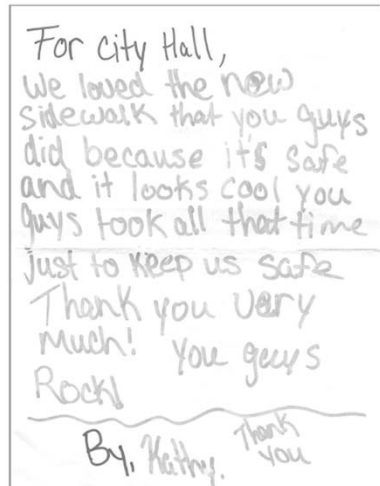 For city Hall,
We loved the now
sidewalk that you guys
did because it's safe
and it looks cool you
guys took all that time
just to keep us safe
Thank you very
Much! you guys
Rock!
By, Kathy.
Thank
you